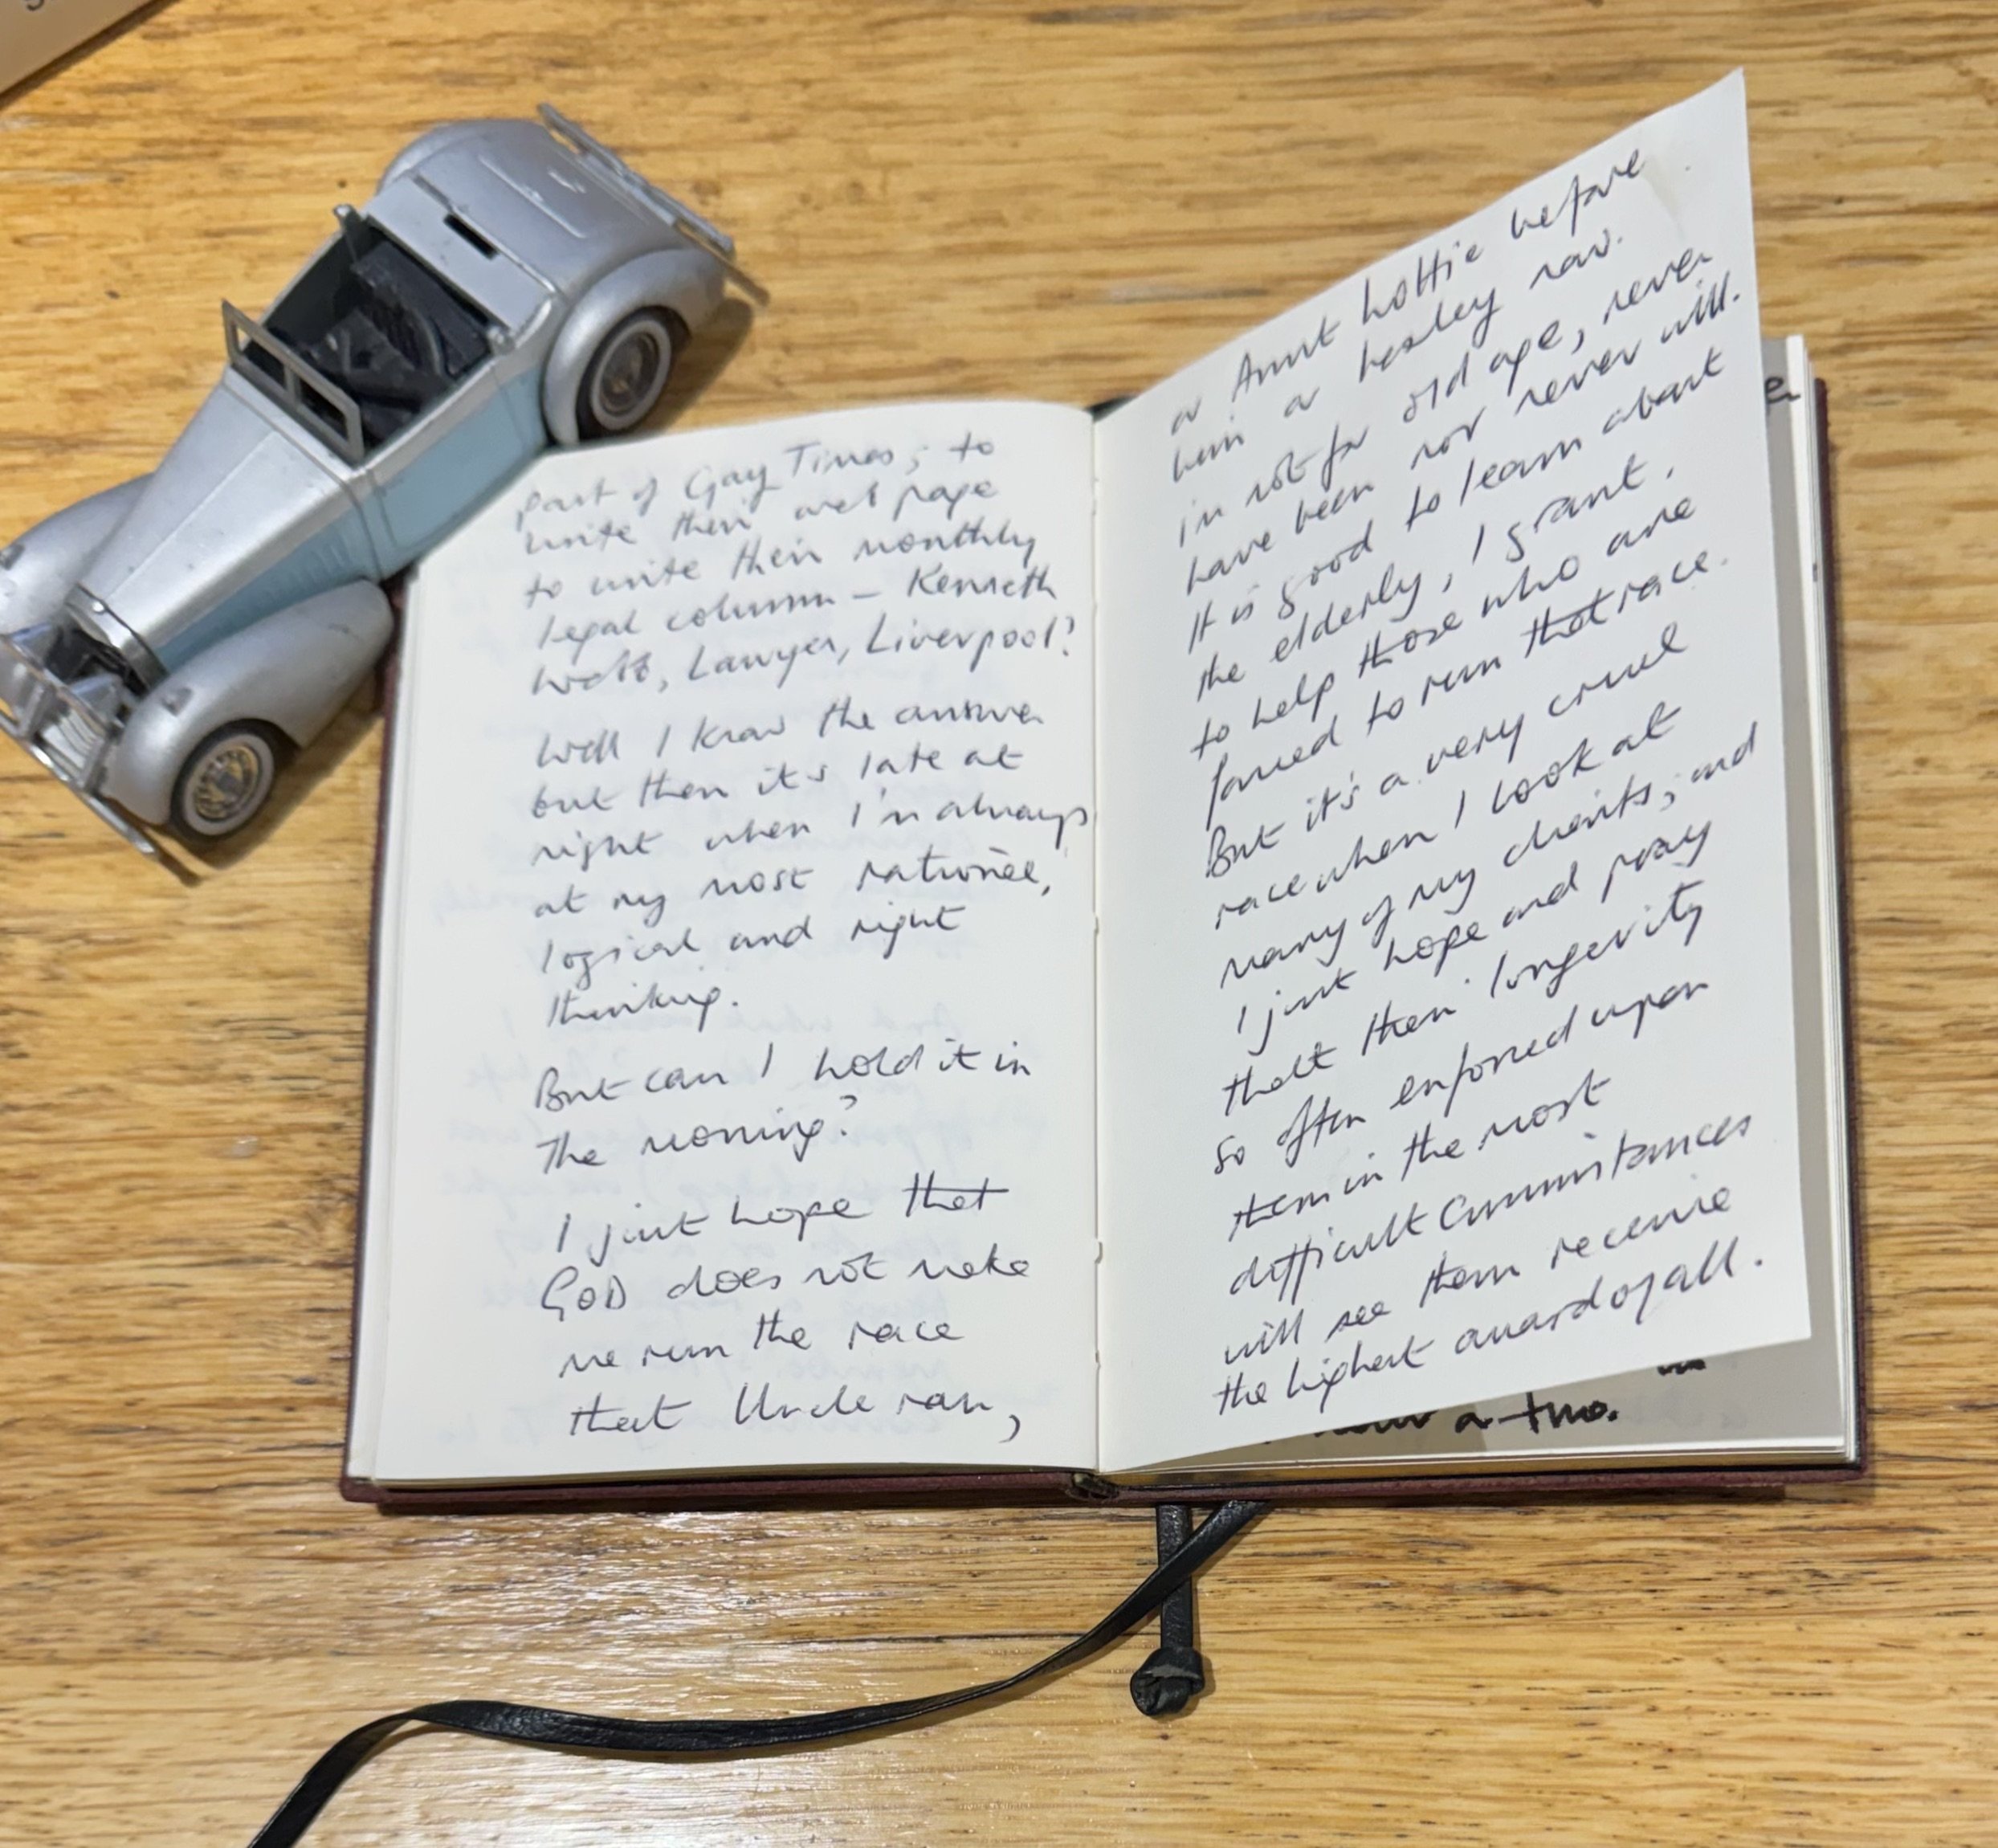 part of Gay Times; to
write their web page
to write their monthly
legal column – Kenneth
Lawyer, Liverpool?
Well I know the answer
but then it's late at
night when I'm always
at my most rational,
logical and right
thinking.
But can I hold it in
the morning?
I just hope that
GOD does not make
me run the race
that Uncle ran,
or Aunt Lottie before
him a now.
I'm not for old age, never
have been nor never will.
It is good to learn about
the elderly, I grant,
to help those who are
forced to run that race.
But it's a very cruel
race when I look at
many of my clients; and
I just hope and pray
that their longevity
so often enforced upon
them in the most
difficult circumstances
will see them receive
the highest award of all.
a two.